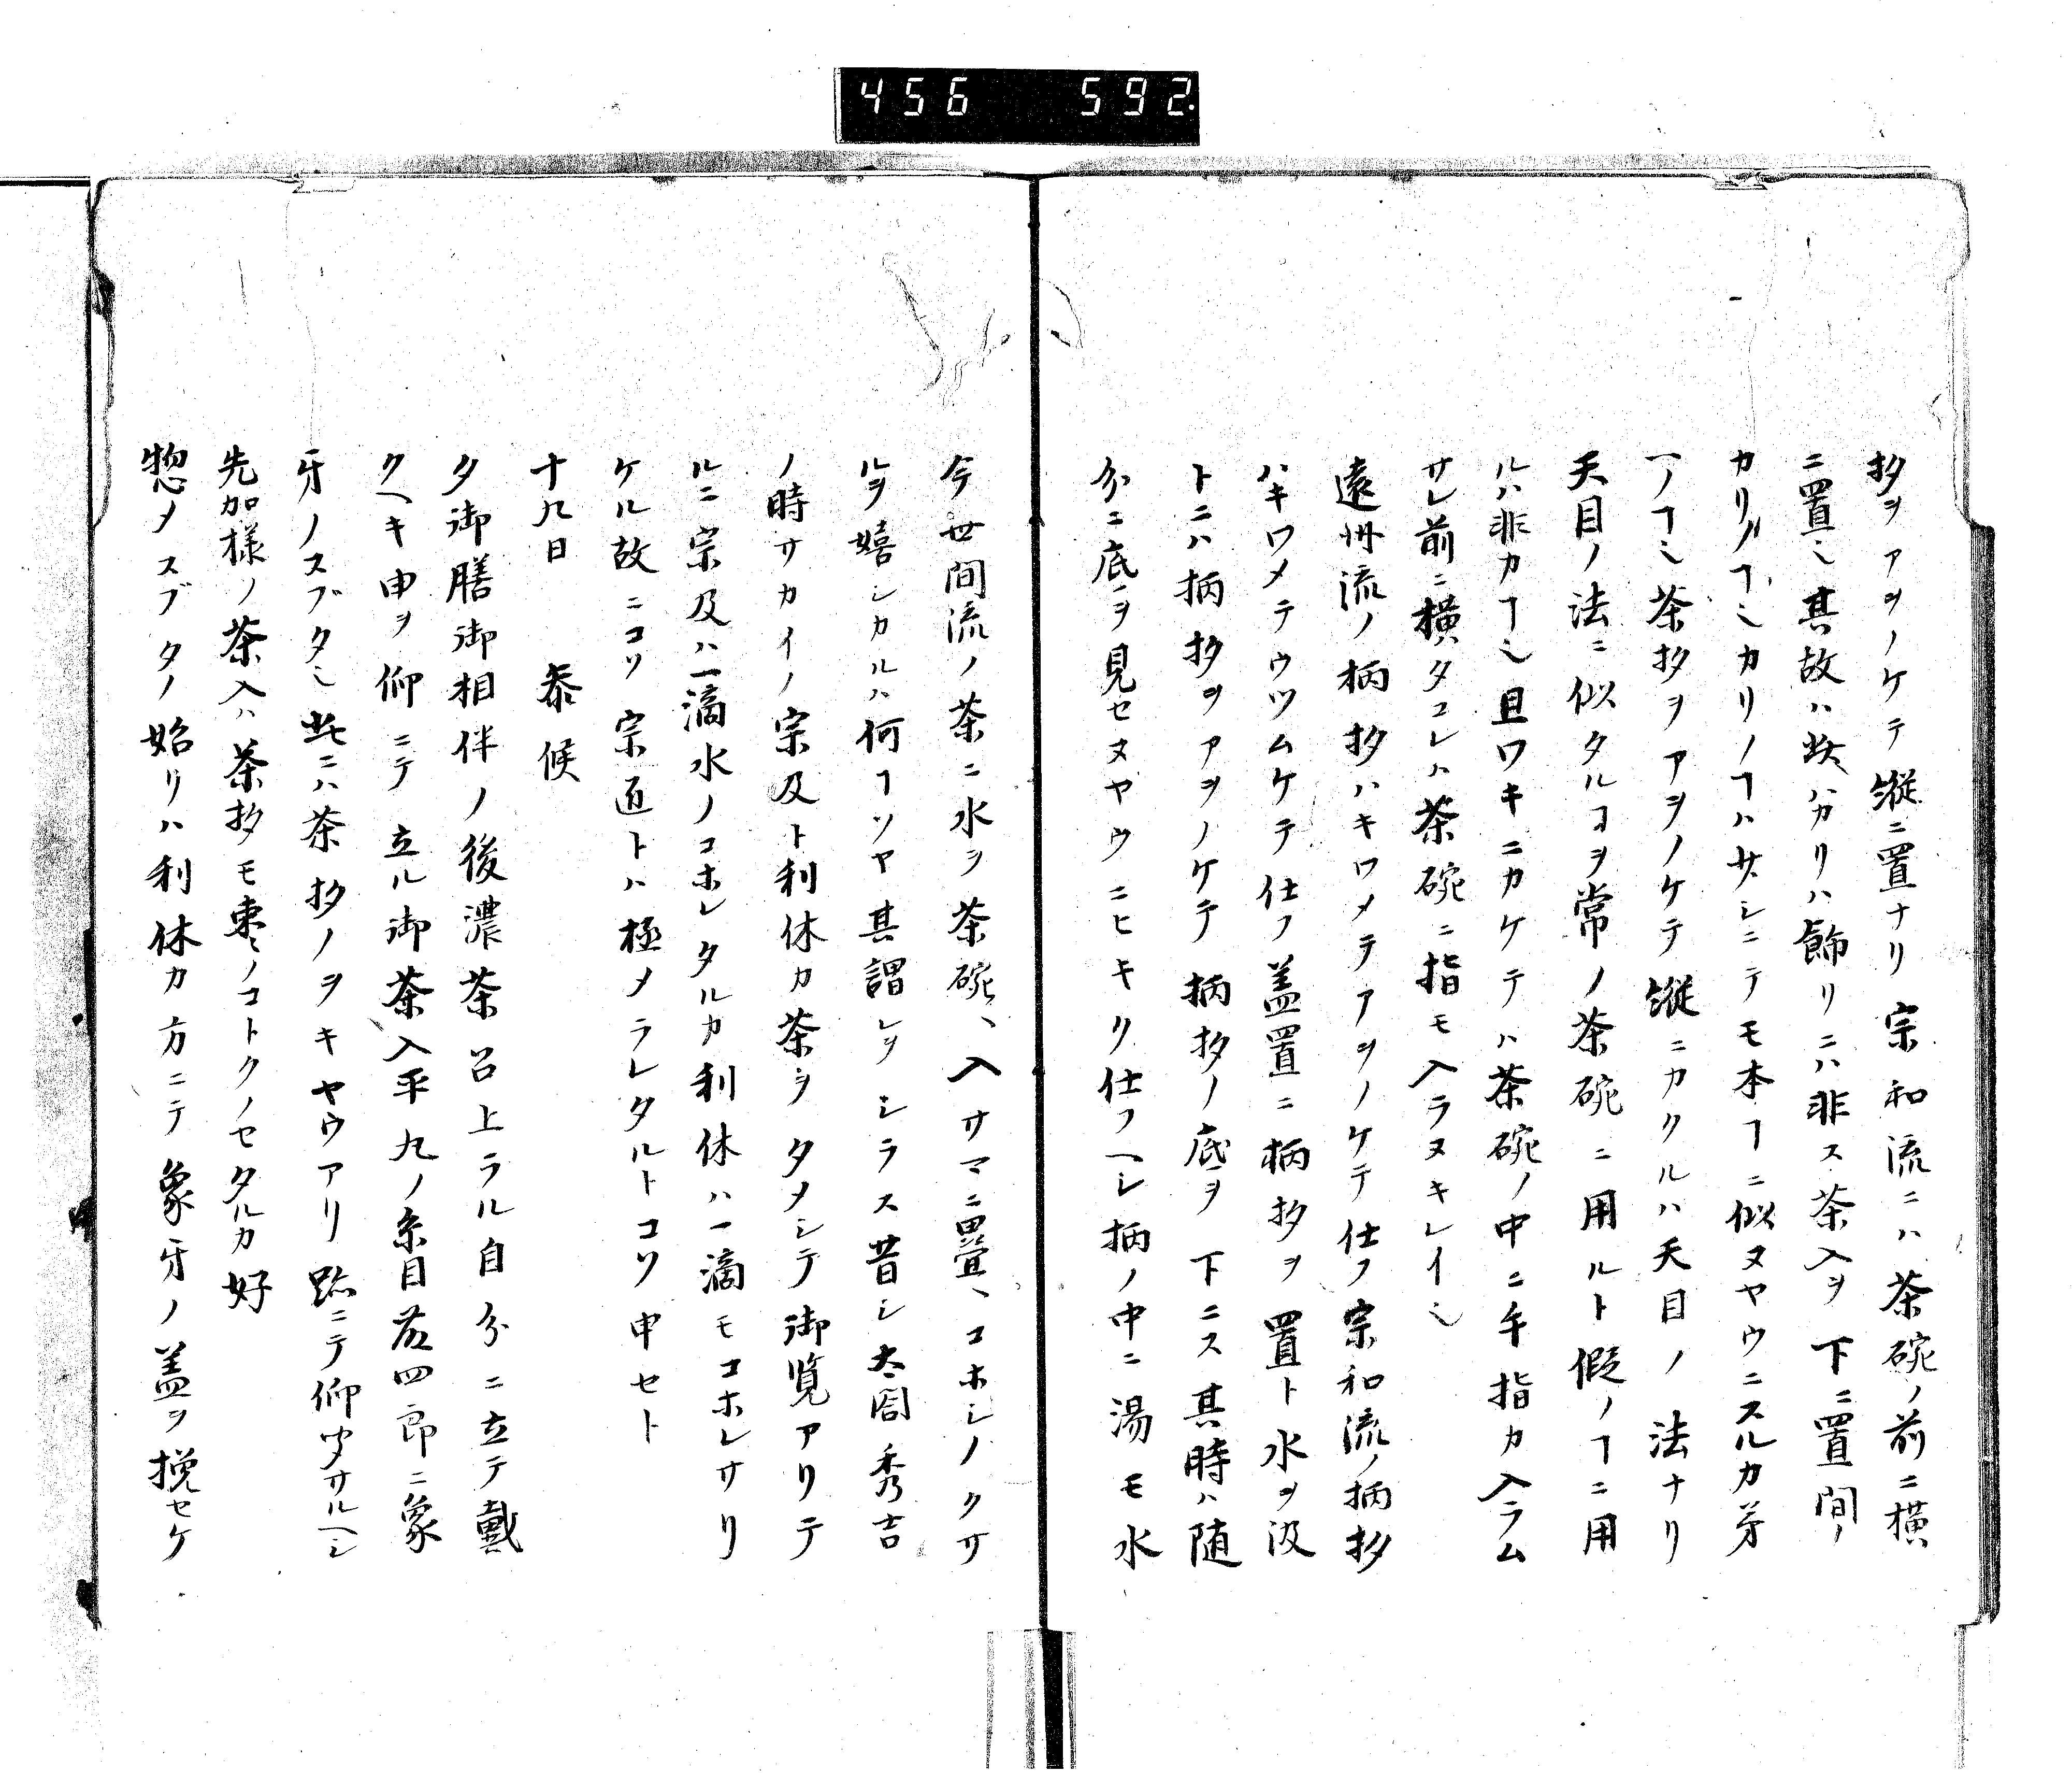 456 592.
杓ヲアヲノケテ縦ニ置ナリ宗和流ニハ茶碗ノ前ニ横
ニ置也其故ハ此ハカリハ飾リニハ非ス茶入ヲ下ニ置間ノ
カリノヿ也カリノヿハサシニテモ本ヿニ似ヌヤウニスルカ芽
一ノヿ也茶杓ヲアヲノケテ縦ニカクルハ天目ノ法ナリ
天目ノ法ニ似タルヿヲ常ノ茶碗ニ用ルト假ノヿニ用
ルハ非カヿ也且ワキニカケテハ茶碗ノ中ニ手指カ入ラム
サレ前ニ横タユレハ茶碗ニ指モ入ラヌキレイ也
遠州流ノ柄杓ハキワメテアヲノケテ仕フ宗和流ノ柄杓
ハキワメテウツムケテ仕フ蓋置ニ柄杓ヲ置ト水ヲ汲
トニハ柄杓ヲアヲノケテ柄杓ノ底ヲ下ニス其時ハ随
分ニ底ヲ見セヌヤウニヒキク仕フヘシ柄ノ中ニ湯モ水
今世間流ノ茶ニ水ヲ茶碗ヘ入サマニ畳ヘコホシノクサ
ルヲ嬉シカルハ何ヿソヤ其謂レヲシラス昔シ太閤秀吉
ノ時サカイノ宗及ト利休カ茶ヲタメシテ御覧アリテ
ルニ宗及ハ一滴水ノコホレタルカ利休ハ一滴モコホレサリ
ケル故ニコソ宗匠トハ極メラレタルトコソ申セト
十九日 参候
夕御膳御相伴ノ後濃茶召上ラル自分ニ立テ戴
クヘキ申ヲ仰ニテ立ル御茶入平丸ノ糸目蓋四郎ニ象
牙ノスブタ也此ニハ茶杓ノヲキヤウアリ跡ニテ仰聞サルヘシ
先加様ノ茶入ハ茶杓モ棗ミノコトクノセタルカ好
惣メスブタノ始リハ利休カ方ニテ象牙ノ蓋ヲ挽セケ